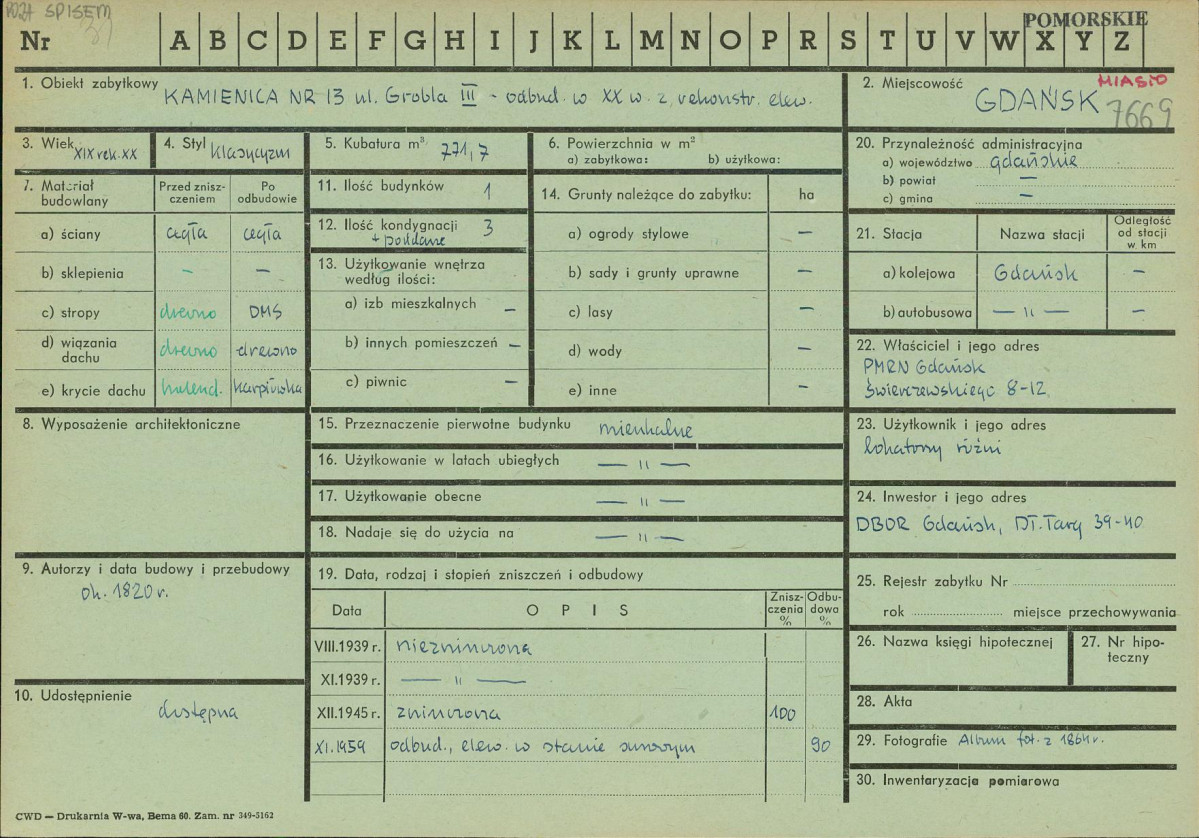 POZA SPISEM
POMORSKIE
Nr A B C D E F G H I J K L M N O P R S T U V W X Y Z
1. Obiekt zabytkowy KAMIENICA NR 13 ul. Grobla III - odbud. w XX w. z rekonstr. elew.
2. Miejscowość MIASTO
GDAŃSK 7669
3. Wiek XIX rek. XX
4. Styl klasycyzm
5. Kubatura m³ 771,7
6. Powierzchnia w m²
a) zabytkowa: b) użytkowa:
7. Materiał budowlany
Przed zniszczeniem
Po odbudowie
a) ściany cegła cegła
b) sklepienia - -
c) stropy drewno DMS
d) wiązania dachu drewno drewno
e) krycie dachu holend. karpiówka
8. Wyposażenie architektoniczne
9. Autorzy i data budowy i przebudowy
ok. 1820 r.
10. Udostępnienie
dostępna
11. Ilość budynków 1
12. Ilość kondygnacji 3
+ poddasze
13. Użytkowanie wnętrza
według ilości:
a) izb mieszkalnych -
b) innych pomieszczeń -
c) piwnic -
14. Grunty należące do zabytku: ha
a) ogrody stylowe -
b) sady i grunty uprawne -
c) lasy -
d) wody -
e) inne -
15. Przeznaczenie pierwotne budynku mieszkalne
16. Użytkowanie w latach ubiegłych — " —
17. Użytkowanie obecne — " —
18. Nadaje się do użycia na — " —
19. Data, rodzaj i stopień zniszczeń i odbudowy
Data OPIS Zniszczenia % Odbudowa %
VIII.1939 r. niezniszczona
XI.1939 r. — " —
XII.1945 r. zniszczona 100
XI.1959 odbud., elew. w stanie surowym 90
20. Przynależność administracyjna
a) województwo gdańskie
b) powiat —
c) gmina —
21. Stacja Nazwa stacji Odległość od stacji w km
a) kolejowa Gdańsk -
b) autobusowa — " — -
22. Właściciel i jego adres
PMRN Gdańsk
Świerczewskiego 8-12
23. Użytkownik i jego adres
lokatorzy różni
24. Inwestor i jego adres
DBOR Gdańsk, Dł. Targ 39-40
25. Rejestr zabytku Nr
rok miejsce przechowywania
26. Nazwa księgi hipotecznej
27. Nr hipoteczny
28. Akta
29. Fotografie Album fot. z 1864 r.
30. Inwentaryzacja pomiarowa
CWD — Drukarnia W-wa, Bema 60. Zam. nr 349-5162